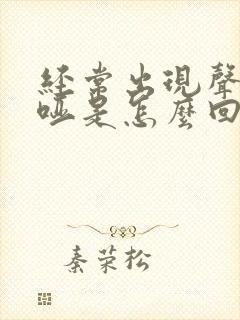 經常出現聲
啞是怎麼回
秦荣松